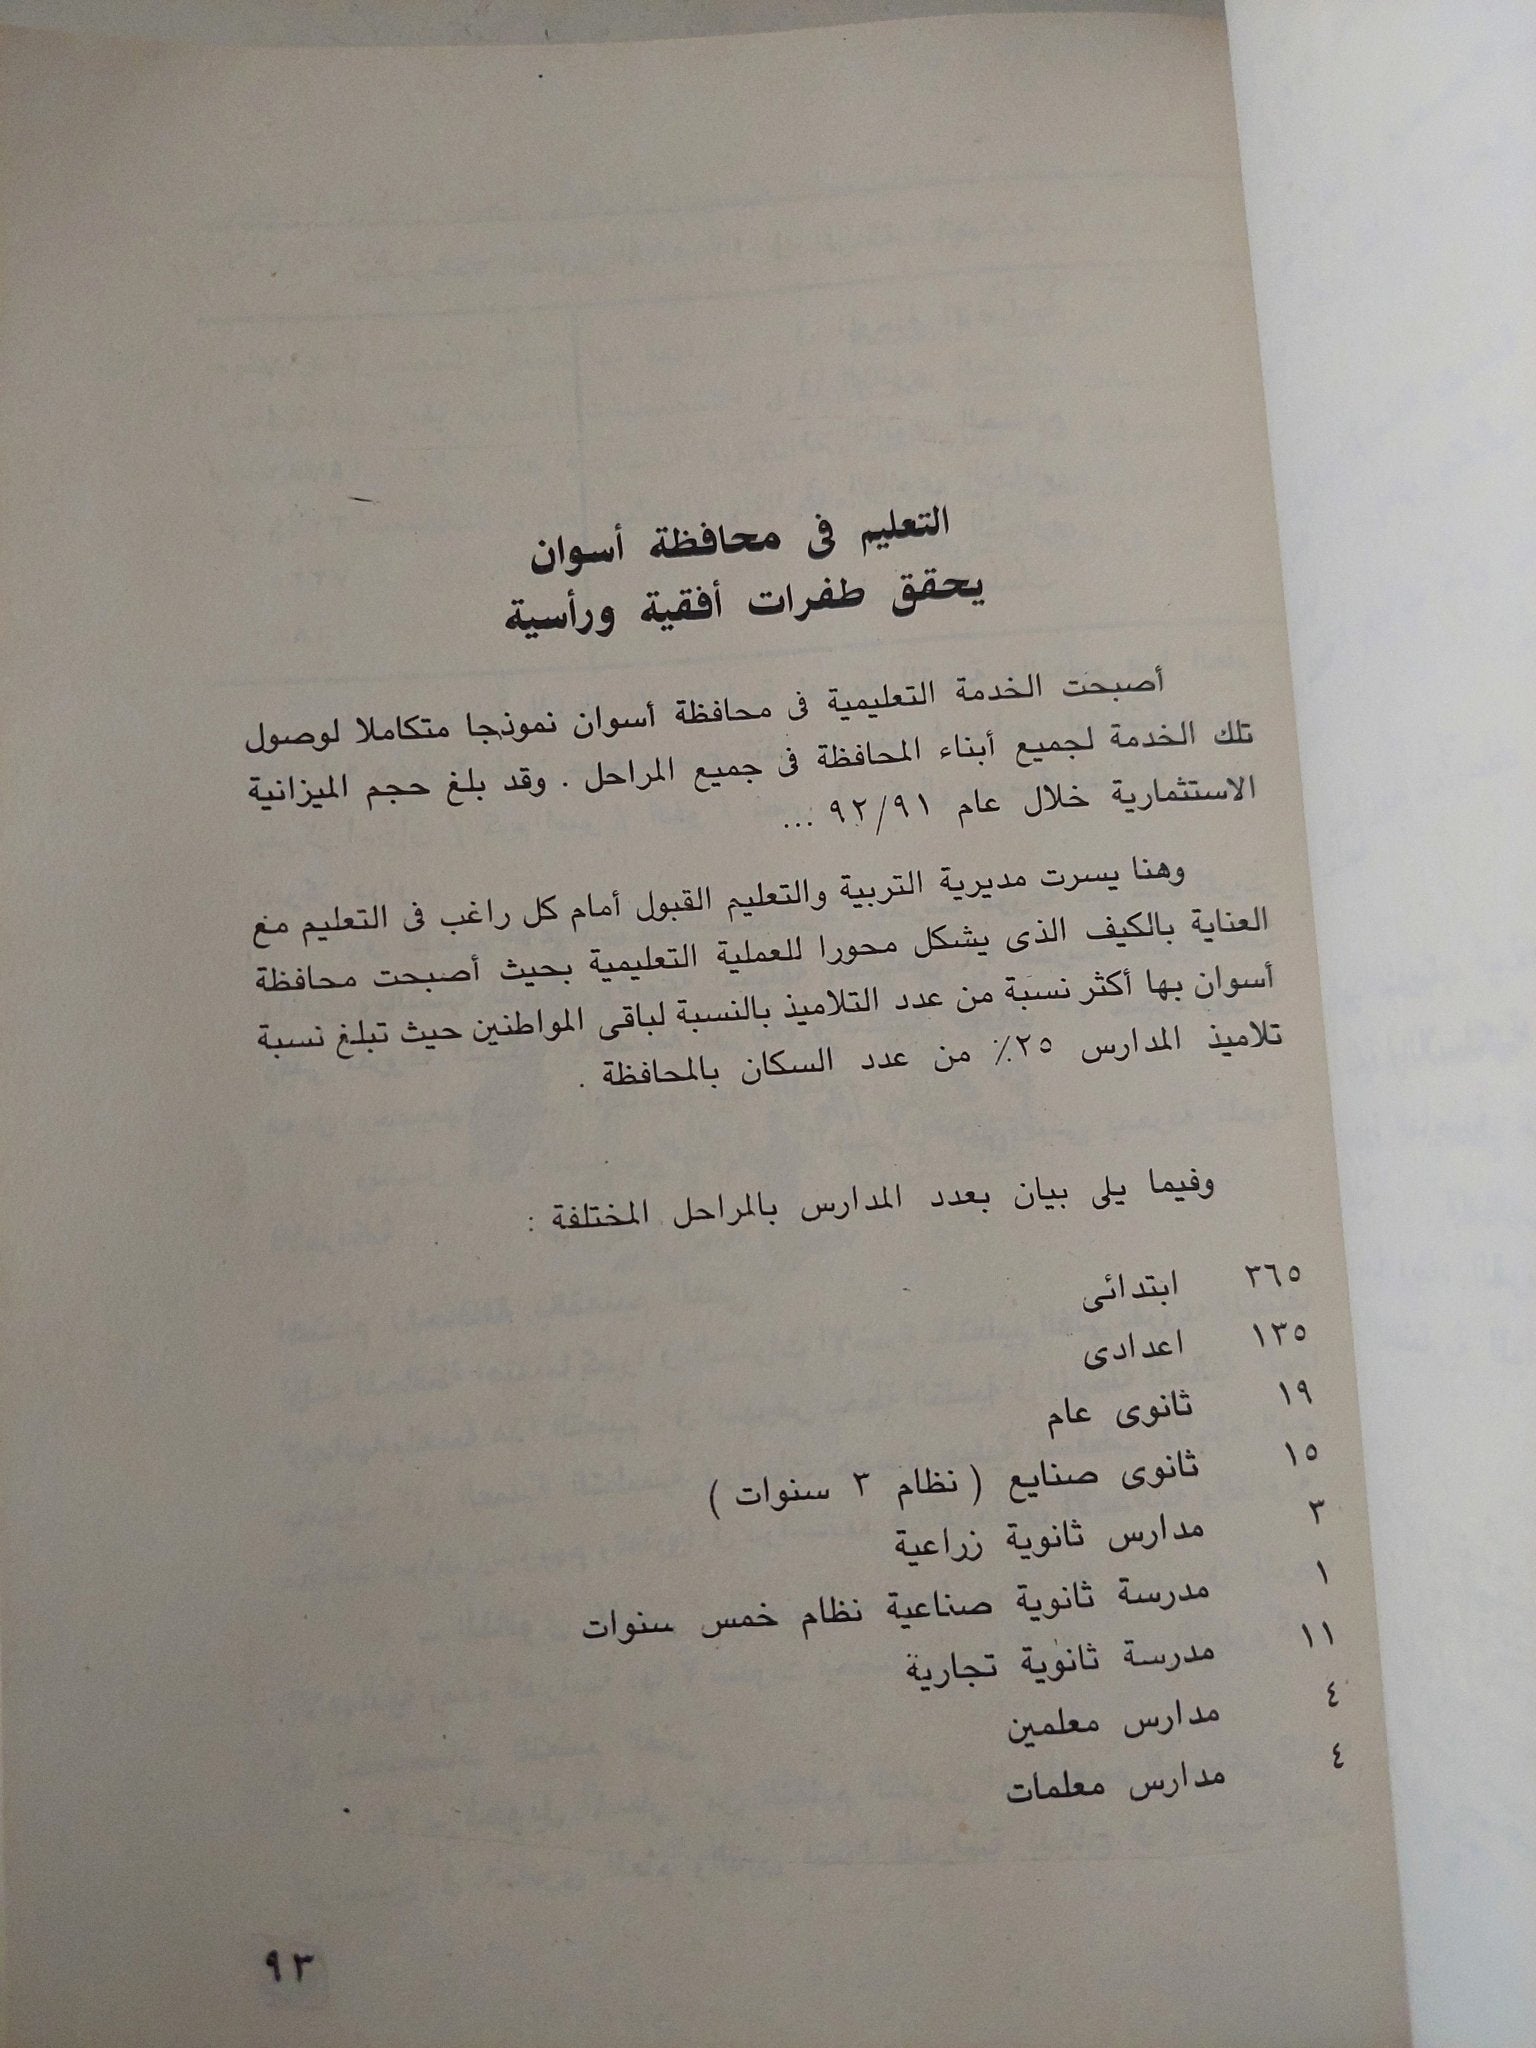 التعليم فى محافظة أسوان
يحقق طفرات أفقية ورأسية
أصبحت الخدمة التعليمية فى محافظة أسوان نموذجا متكاملا لوصول
تلك الخدمة لجميع أبناء المحافظة فى جميع المراحل . وقد بلغ حجم الميزانية
الاستثمارية خلال عام ٩٢/٩١ ...
وهنا يسرت مديرية التربية والتعليم القبول أمام كل راغب فى التعليم مع
العناية بالكيف الذى يشكل محورا للعملية التعليمية بحيث أصبحت محافظة
أسوان بها أكثر نسبة من عدد التلاميذ بالنسبة لباقى المواطنين حيث تبلغ نسبة
تلاميذ المدارس ٢٥٪ من عدد السكان بالمحافظة .
وفيما يلى بيان بعدد المدارس بالمراحل المختلفة :
٣٦٥ ابتدائى
١٣٥ اعدادى
١٩ ثانوى عام
١٥ ثانوى صنايع ( نظام ٣ سنوات )
٣ مدارس ثانوية زراعية
١ مدرسة ثانوية صناعية نظام خمس سنوات
١١ مدرسة ثانوية تجارية
٤ مدارس معلمين
٤ مدارس معلمات
٩٣